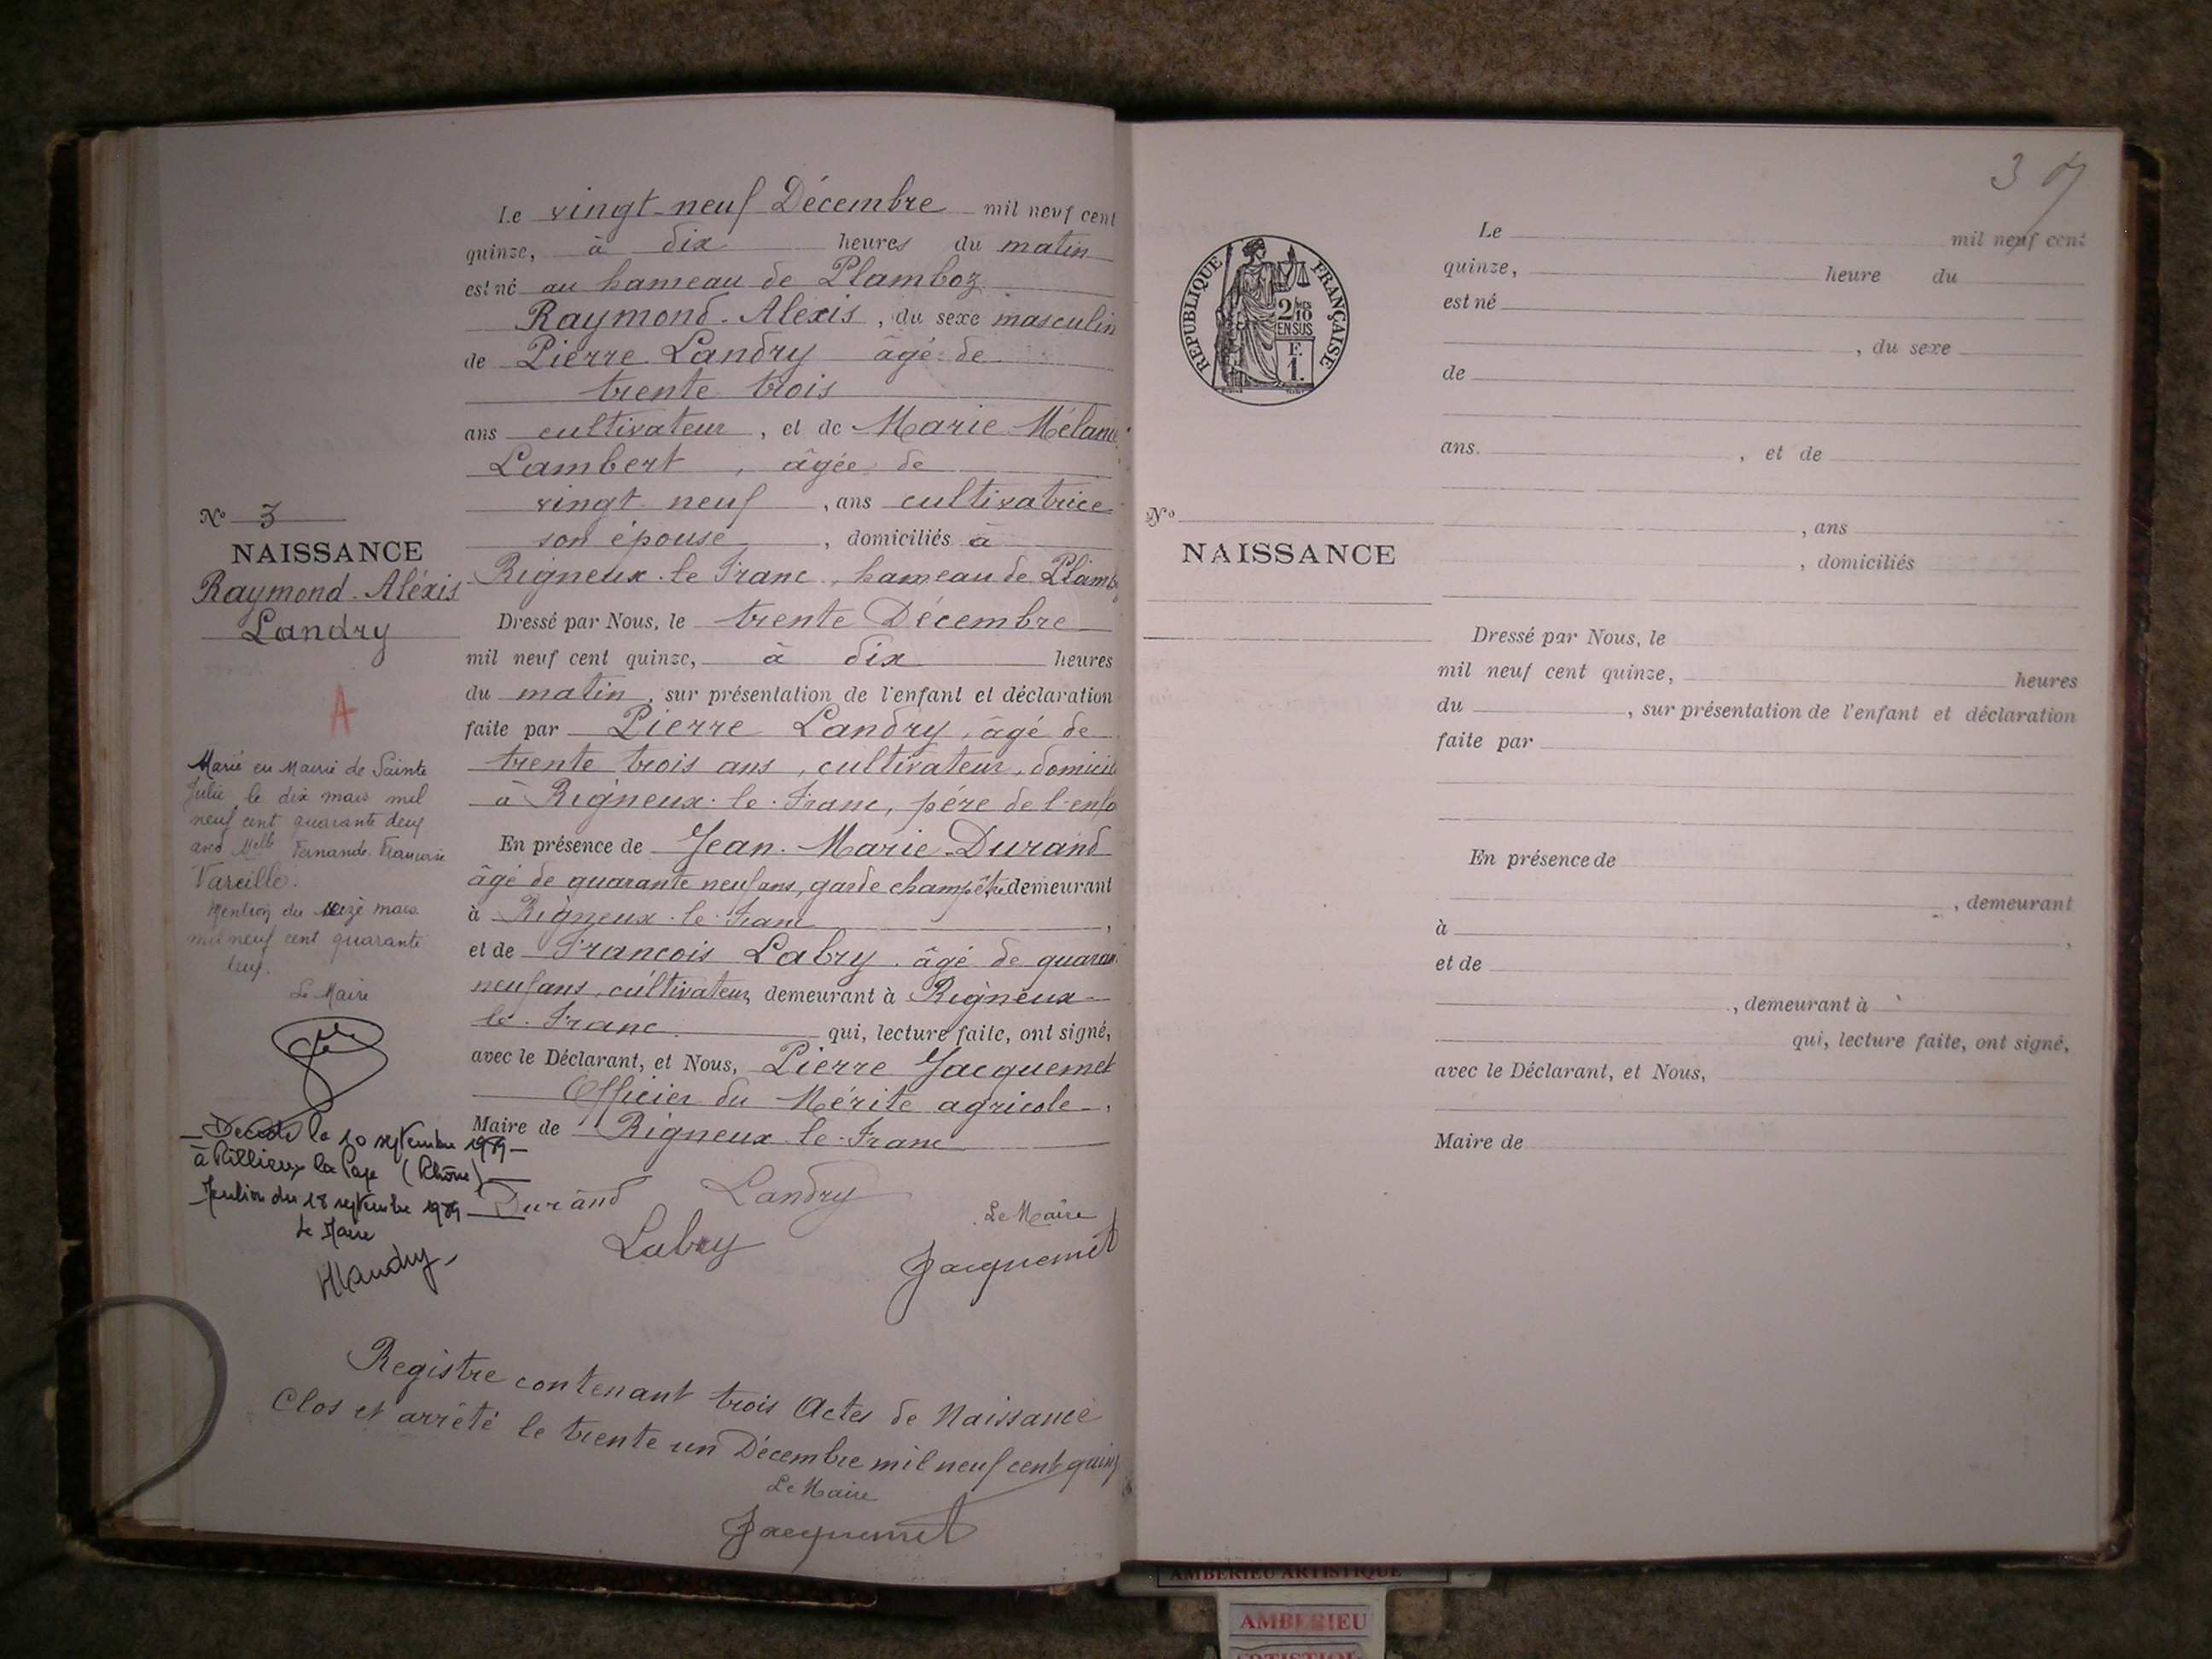 Le vingt-neuf Décembre mil neuf cent
quinze, à dix heures du matin
est né au hameau de Plamboz
Raymond-Alexis, du sexe masculin
de Pierre Landry âgé de
trente trois
ans cultivateur, et de Marie Mélanie
Lambert, âgée de
vingt neuf, ans cultivatrice
son épouse, domiciliés à
Rigneux-le-Franc, hameau de Plamb
Dressé par Nous, le trente Décembre
mil neuf cent quinze, à dix heures
du matin, sur présentation de l'enfant et déclaration
faite par Pierre Landry, âgé de
trente trois ans, cultivateur, domicil
à Rigneux-le-Franc, père de l'enfa
En présence de Jean-Marie Durand
âgé de quarante neuf ans, garde champêtre demeurant
à Rigneux-le-Franc,
et de Francois Labry, âgé de quaran
neuf ans, cultivateur, demeurant à Rigneux-
le-Franc qui, lecture faite, ont signé,
avec le Déclarant, et Nous, Pierre Jacquemet
Officier du Mérite agricole,
Maire de Rigneux-le-Franc
Durand Landry
Labry
Le Maire
Jacquemet
N° 3
NAISSANCE
Raymond-Aléxis
Landry
A
Marié en Mairie de Sainte
Julie, le dix mars mil
neuf cent quarante deux
avec Melle Fernande-Francine
Vareille.
Mention du seize mars
mil neuf cent quarante
deux.
Le Maire
Décédé le 10 septembre 1989
à Rillieux la Pape (Rhône)
Mention du 18 septembre 1989
Le Maire
HLandry
Registre contenant trois Actes de Naissance
Clos et arrêté le trente un Décembre mil neuf cent quinz
Le Maire
Jacquemet
37
REPUBLIQUE FRANÇAISE
2/10
EN SUS
F.
1.
N°
NAISSANCE
Le mil neuf cent
quinze, heure du
est né
, du sexe
de
ans. , et de
, ans
, domiciliés
Dressé par Nous, le
mil neuf cent quinze, heures
du , sur présentation de l'enfant et déclaration
faite par
En présence de
, demeurant
à ,
et de
, demeurant à
qui, lecture faite, ont signé,
avec le Déclarant, et Nous,
Maire de
AMBERIEU ARTISTIQUE
AMBERIEU
ARTISTIQU